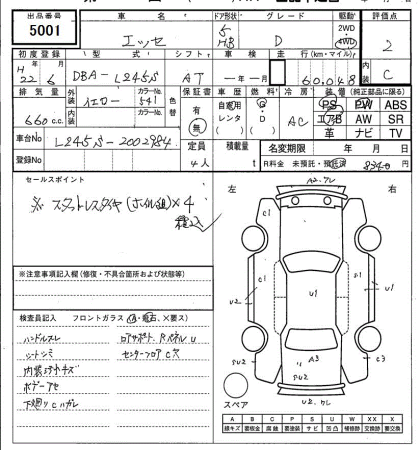 出品番号
5001
車名
エッセ
ドア形状
5
HB
グレード
D
駆動
2WD
4WD
評価点
2
初度登録
H 22年 6月
型式
DBA-L245S
シフト
AT
車検
―年―月
走行(km・マイル)
60,048
内装
C
排気量
660 c.c.
外装
イエロー
カラーNo.
541
内装
カラーNo.
色替
保証書
有
無
車歴
自家用
レンタ
燃料
G
・
D
冷房
AC
装備(純正部品に限る)
PS PW ABS
エアB AW SR
革 ナビ TV
車台No.
L245S-2002984
登録No.
定員
4人
積載量
t
名変期限 年 月 日
R料金 未預託・預託済
8340円
セールスポイント
※ スタットレスタイヤ(ホイル組)×4
積込
※注意事項記入欄(修復・不具合箇所および状態等)
検査員記入 フロントガラス(A・飛石、×要ス)
ハンドルスレ
シートシミ
内装ヨゴレキズ
ボデーアセ
下廻りCハガレ
ロアサポート、RパネルU
センターフロアC穴
左
右
A2、クレ
C1
S1
U2
U1
S1
C1
SU2
A3
C3
SU2
U2、クレ
スペア
A B C P S U W X XX X
線キズ 要板金 腐蝕 要塗装 サビ 凹凸 補修跡 交換跡 要交換